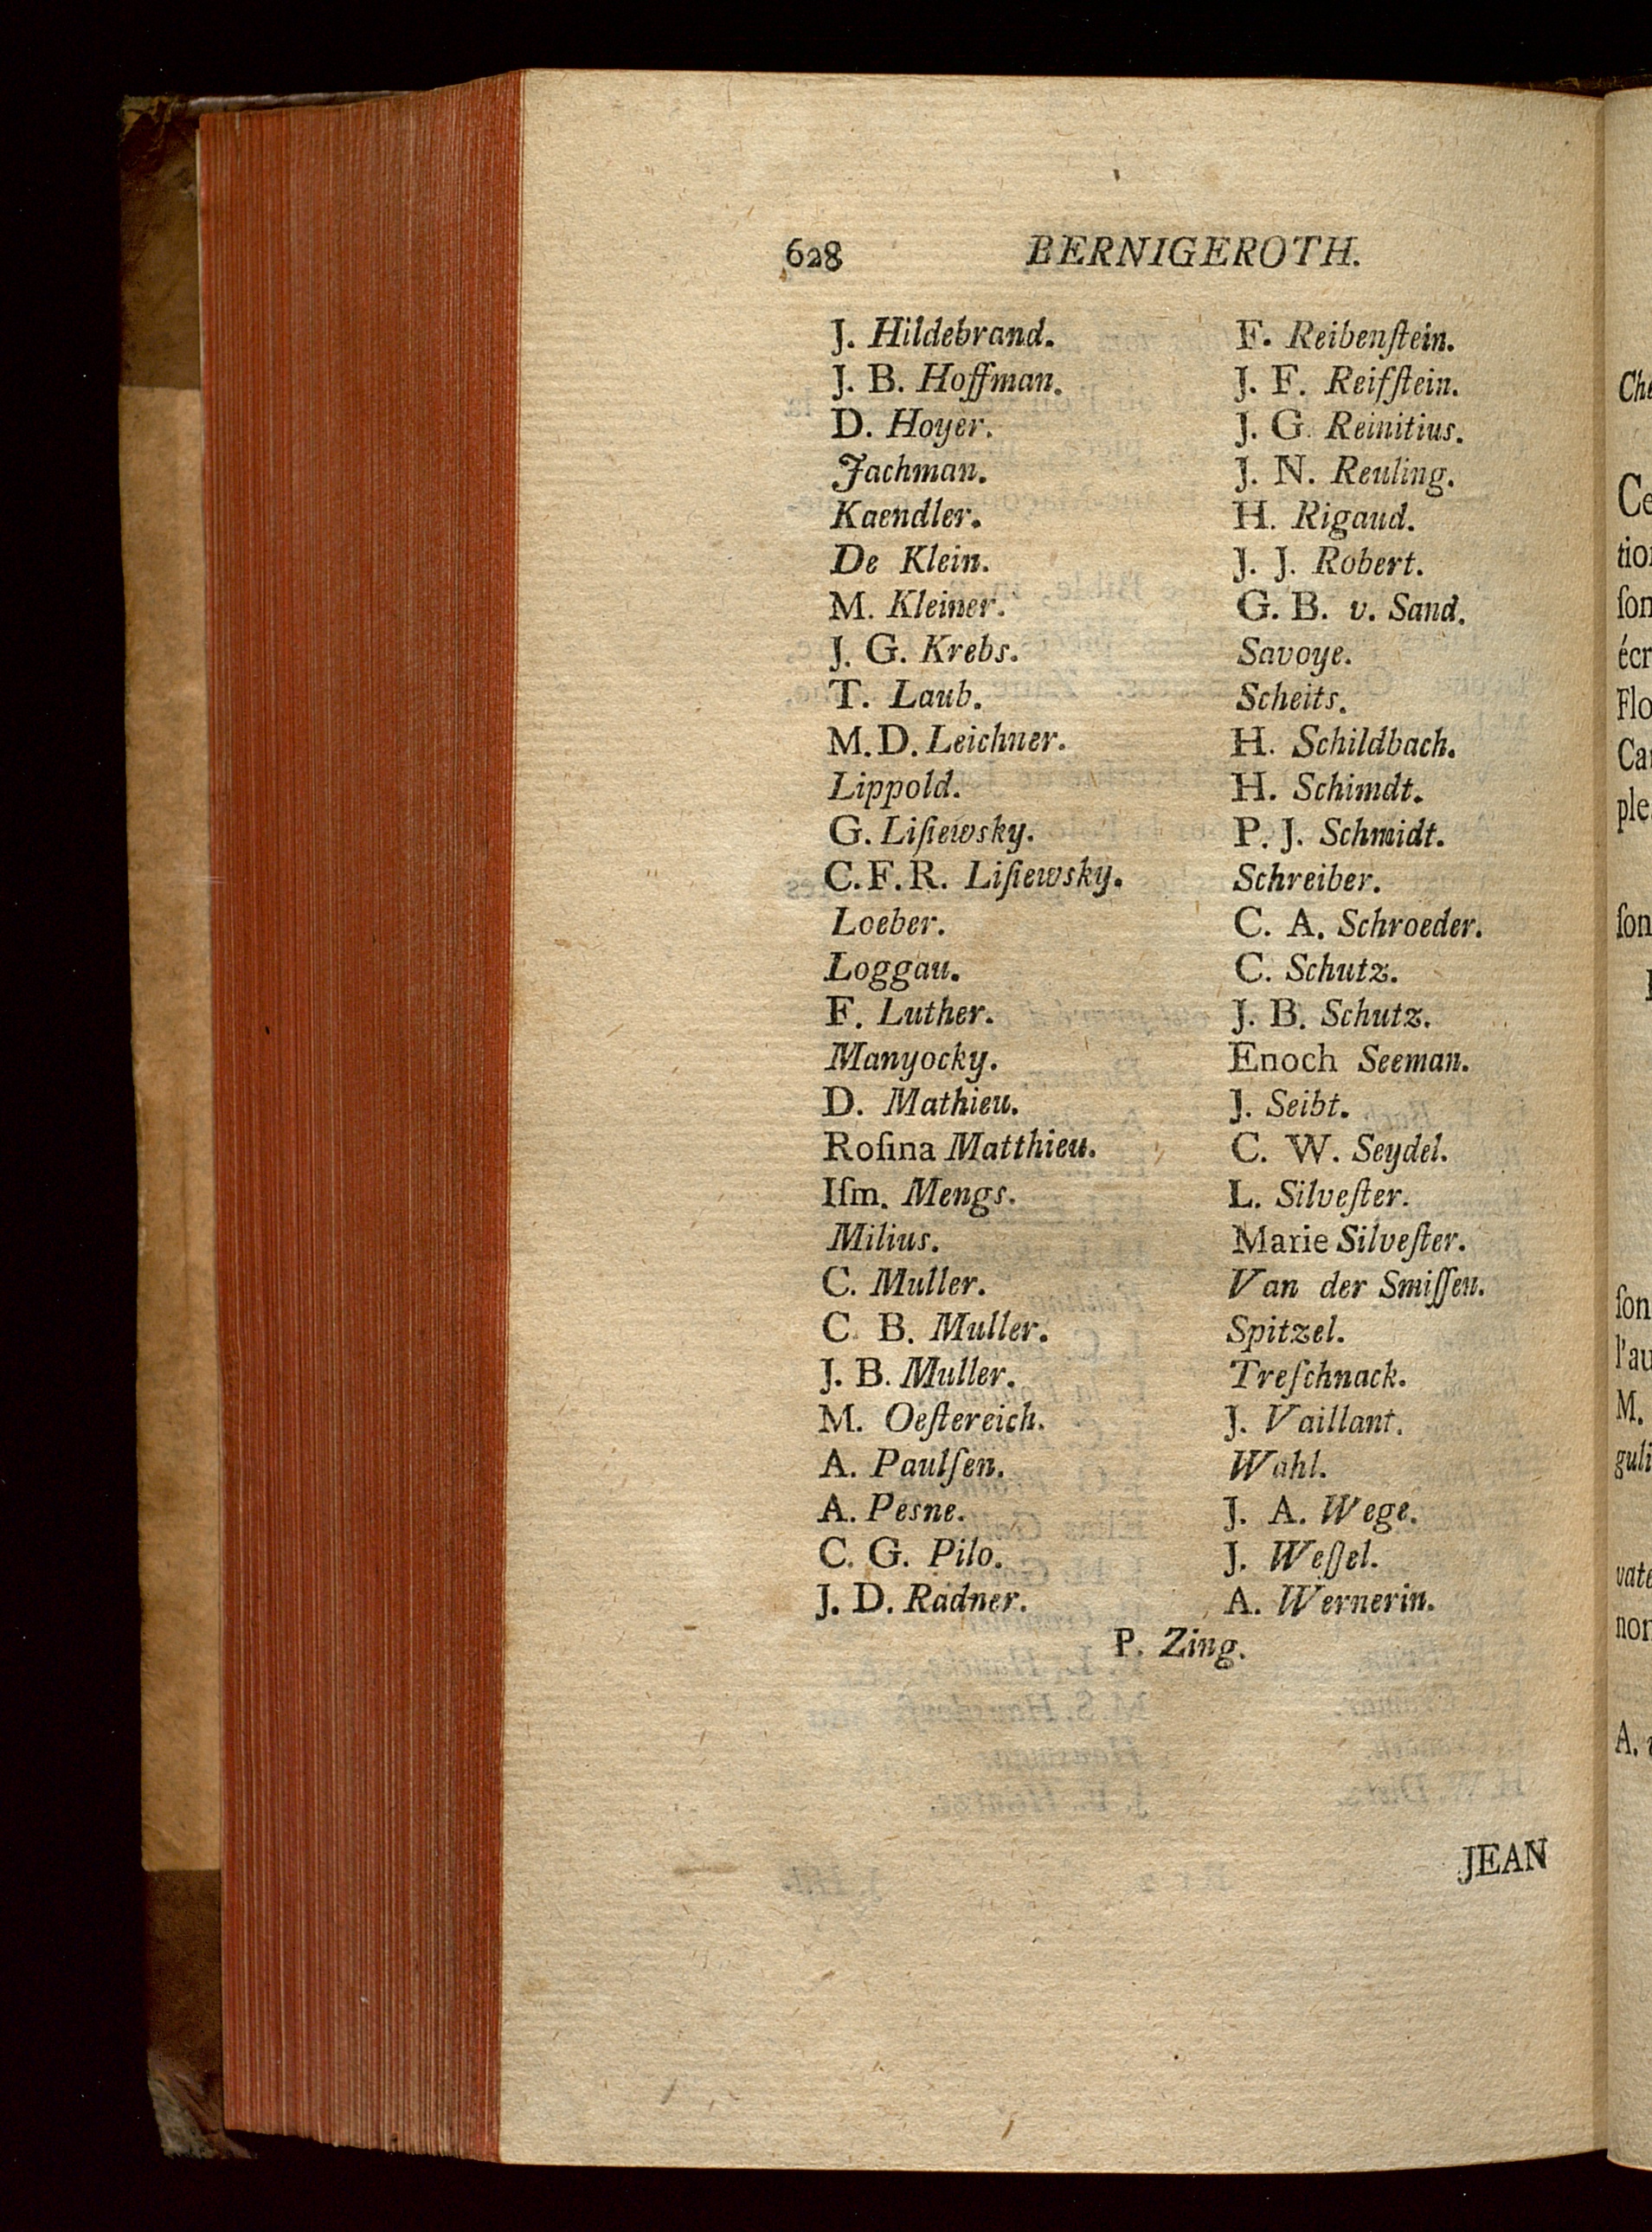 628 BERNIGEROTH.
J. Hildebrand.
J. B. Hoffman.
D. Hoyer.
Jachman.
Kaendler.
De Klein.
M. Kleiner.
J. G. Krebs.
T. Laub.
M. D. Leichner.
Lippold.
G. Liſiewsky.
C. F. R. Liſiewsky.
Loeber.
Loggau.
F. Luther.
Manyocky.
D. Mathieu.
Roſina Matthieu.
Iſm. Mengs.
Milius.
C. Muller.
C. B. Muller.
J. B. Muller.
M. Oeſtereich.
A. Paulſen.
A. Pesne.
C. G. Pilo.
J. D. Radner.
F. Reibenſtein.
J. F. Reifſtein.
J. G. Reinitius.
J. N. Reuling.
H. Rigaud.
J. J. Robert.
G. B. v. Sand.
Savoye.
Scheits.
H. Schildbach.
H. Schimdt.
P. J. Schmidt.
Schreiber.
C. A. Schroeder.
C. Schutz.
J. B. Schutz.
Enoch Seeman.
J. Seibt.
C. W. Seydel.
L. Silveſter.
Marie Silveſter.
Van der Smiſſen.
Spitzel.
Treſchnack.
J. Vaillant.
Wahl.
J. A. Wege.
J. Weſſel.
A. Wernerin.
P. Zing.
JEAN